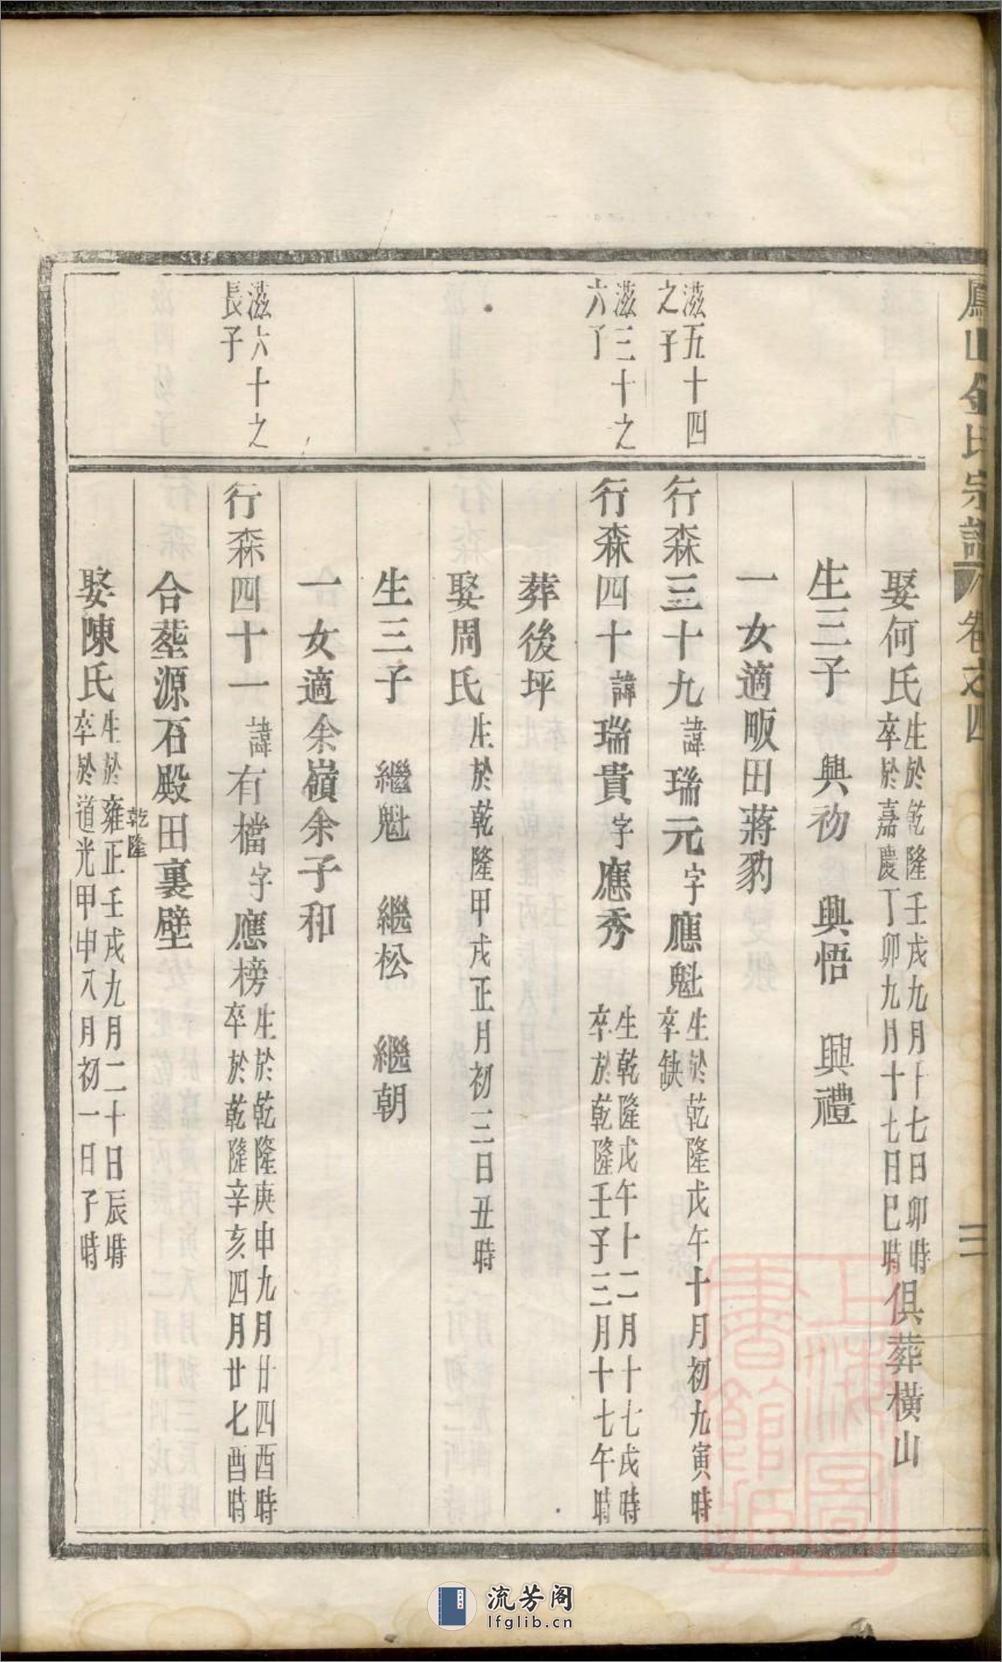 鳳山金氏宗譜 卷之四 三
娶何氏 生於乾隆壬戌九月十七日卯時 卒於嘉慶丁卯九月十七日巳時 俱葬橫山
生三子 興初 興悟 興禮
一女適畈田蔣豹
滋五十四之子
行森三十九諱瑞元字應魁 生於乾隆戊午十月初九寅時 卒缺
滋三十之六子
行森四十諱瑞貴字應秀 生乾隆戊午十二月十七戌時 卒於乾隆壬子三月十七午時
葬後坪
娶周氏 生於乾隆甲戌正月初三日丑時
生三子 繼魁 繼松 繼朝
一女適余嶺余子和
滋六十之長子
行森四十一諱有檔字應榜 生於乾隆庚申九月廿四酉時 卒於乾隆辛亥四月廿七酉時
合塟源石殿田裏壁
娶陳氏 生於雍正壬戌九月二十日辰時 卒於道光甲申八月初一日子時
乾隆
上海圖書館藏
流芳阁
lfglib.cn